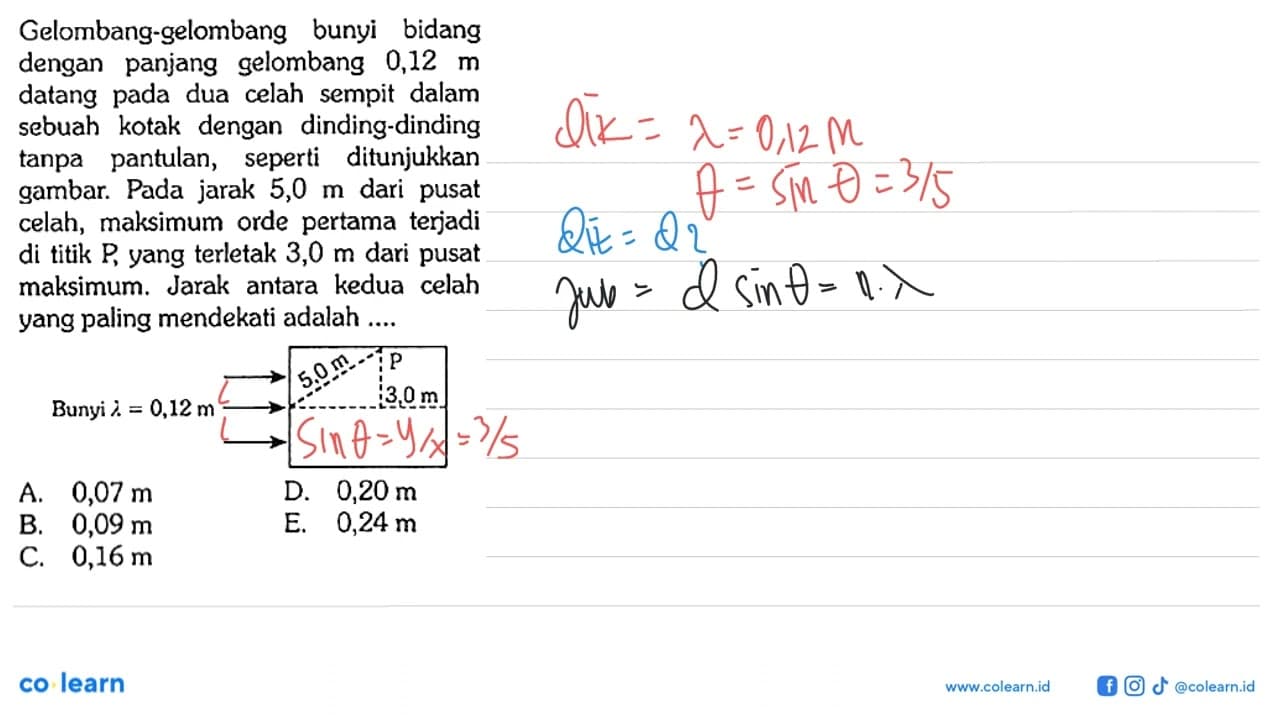 Gelombang-gelombang bunyi bidang
dengan panjang gelombang 0,12 m
datang pada dua celah sempit dalam
sebuah kotak dengan dinding-dinding
tanpa pantulan, seperti ditunjukkan
gambar. Pada jarak 5,0 m dari pusat
celah, maksimum orde pertama terjadi
di titik P, yang terletak 3,0 m dari pusat
maksimum. Jarak antara kedua celah
yang paling mendekati adalah ....
5,0 m
P
3,0 m
Bunyi λ = 0,12 m
Sin θ = y/x = 3/5
A. 0,07 m
B. 0,09 m
C. 0,16 m
D. 0,20 m
E. 0,24 m
Dik = λ = 0,12 M
θ = sin θ = 3/5
Dit = d?
Jwb = d sin θ = n.λ
co learn
www.colearn.id
@colearn.id